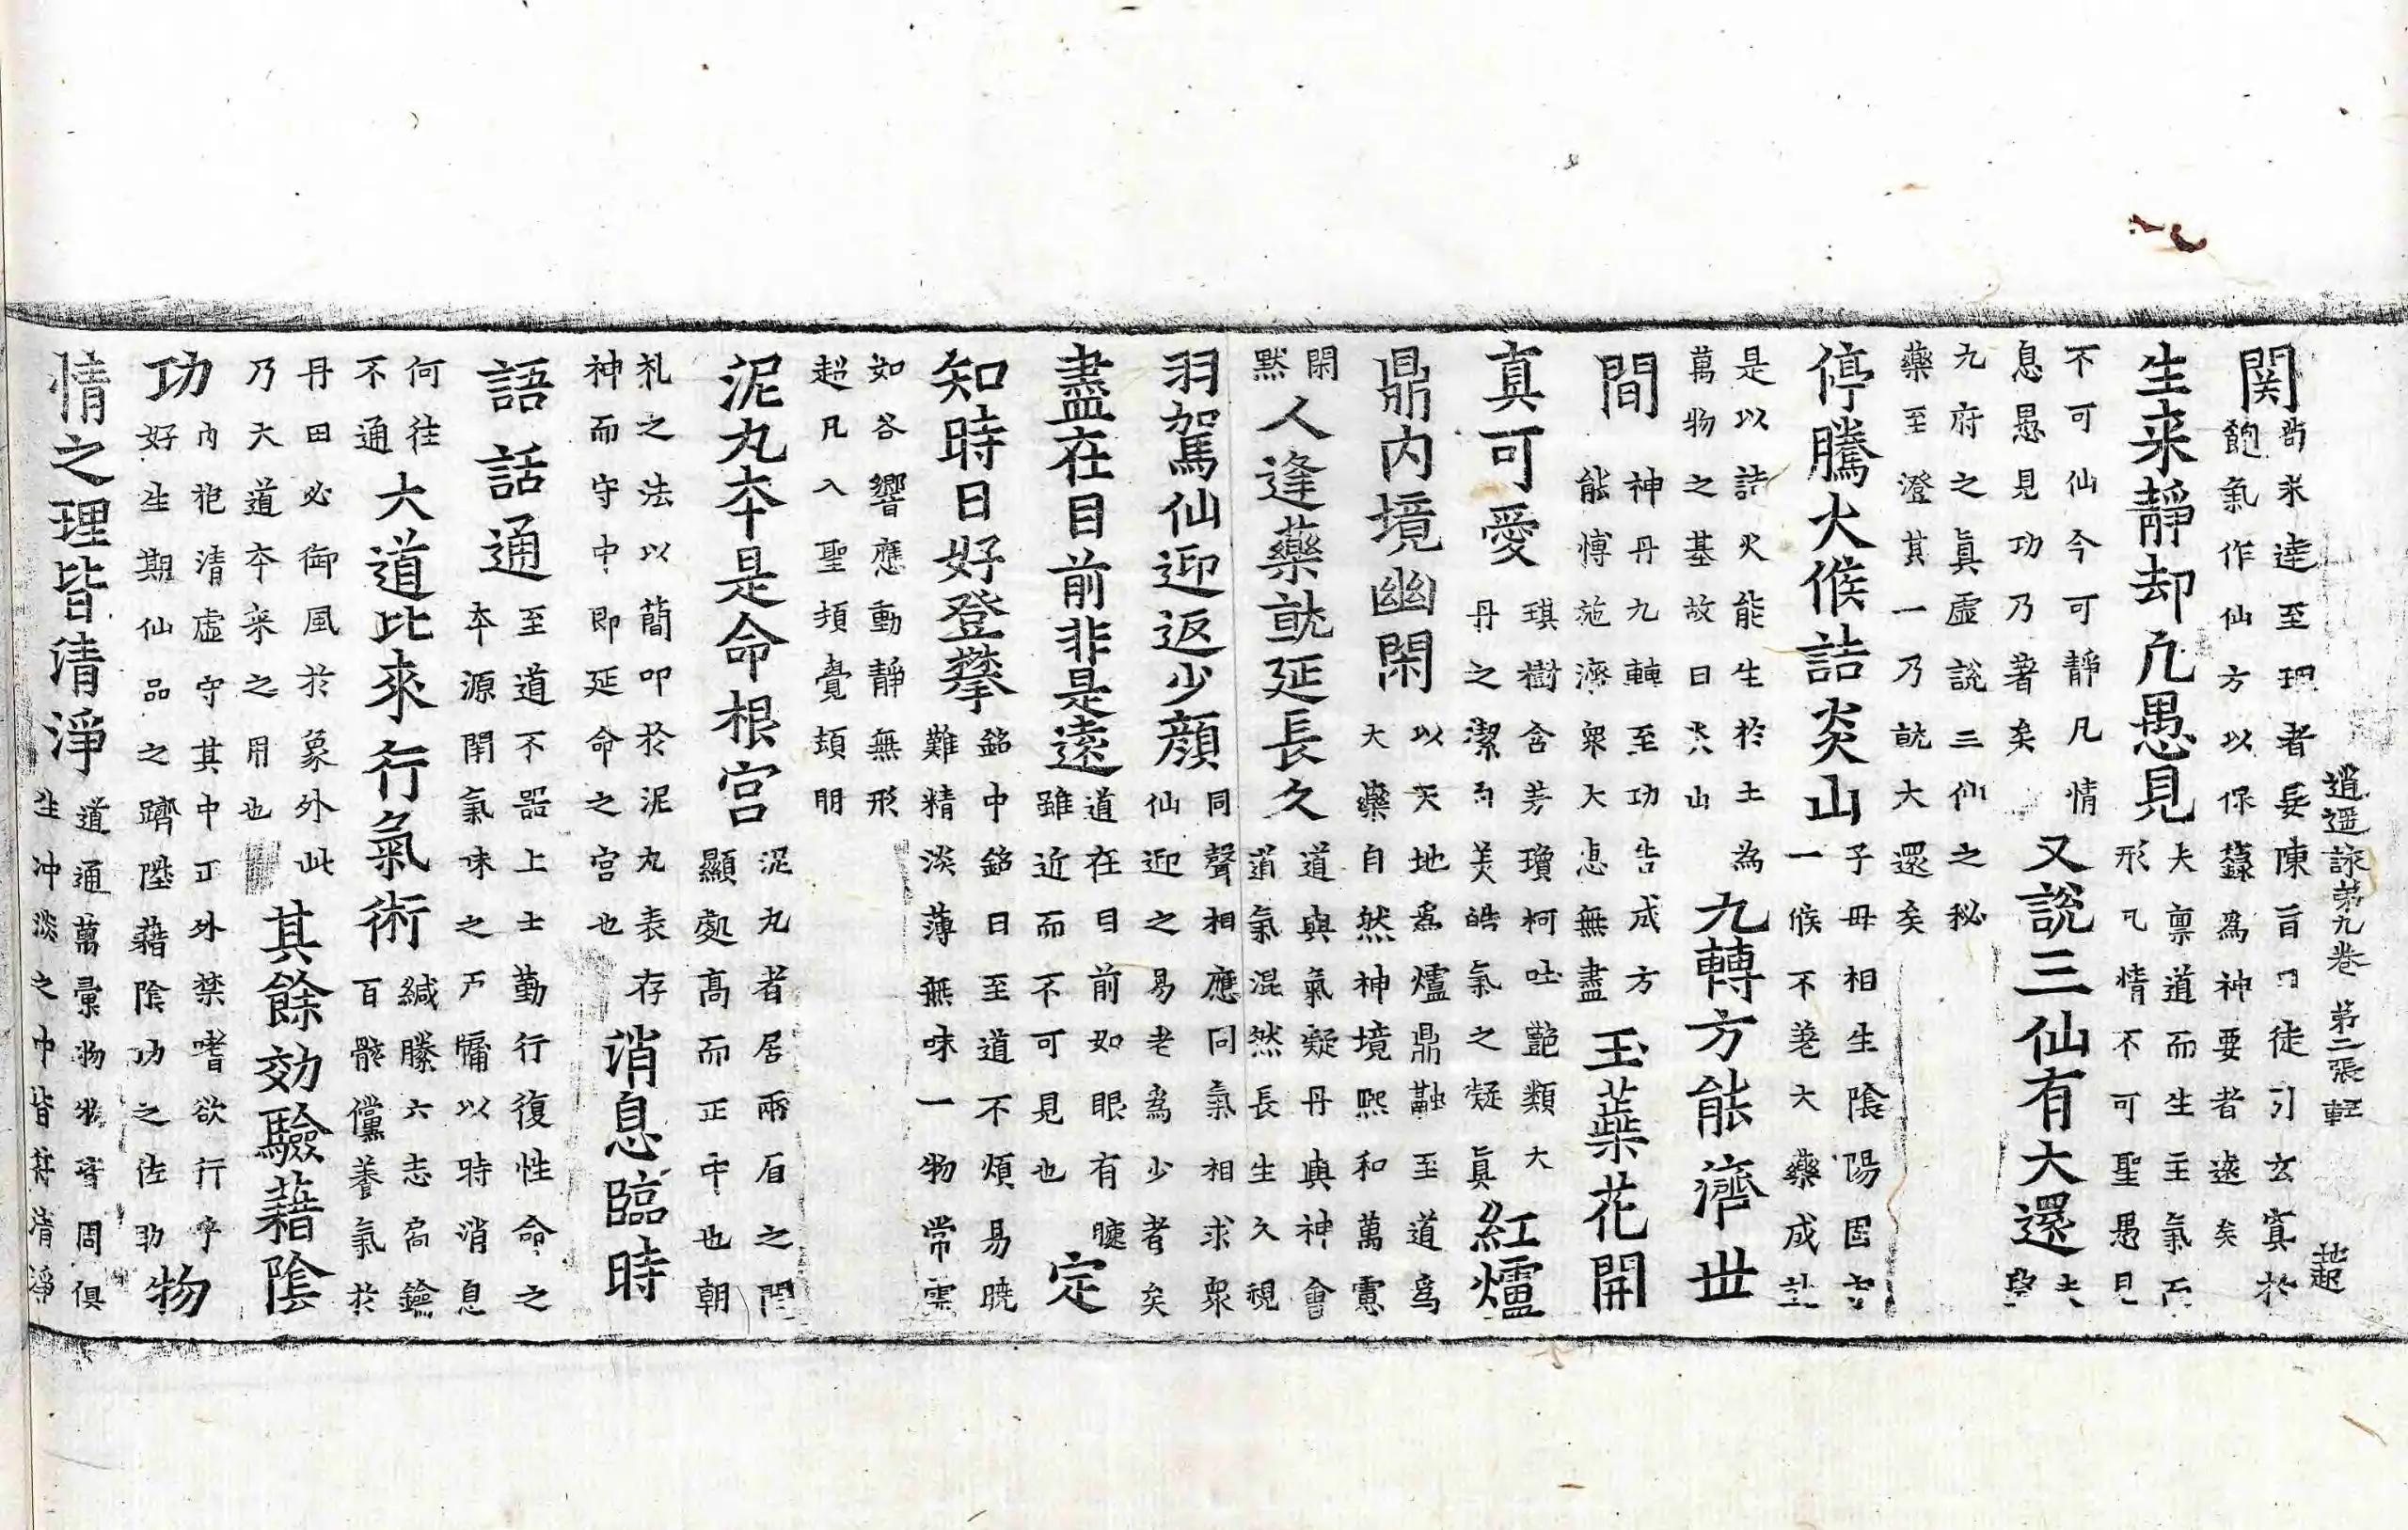 逍遥詠第九卷 第二張 軽 起
関 求達至理者妄陳旨 徒引玄寘於
飽氣作仙方以保籙為神要者逺矣
生来靜却凢愚見 夫禀道而生主氣而
形凢情不可聖愚見
不可仙今可靜凡情
息愚見功乃著矣 又說三仙有大還
九府之眞虛說三仙之秘
藥至澄其一乃就大還矣
停騰火候詰炎山 子母相生陰陽
一候不差大藥成
是以詰火能生於土為
萬物之基故曰炎山 九轉方能濟丗
間 神丹九轉至功告成方
能愽施濟衆大惠無盡 玉蘂花開
真可愛 琪樹含芳瓊柯吐艷類大
丹之潔白美皓氣之凝眞 紅爐
鼎内境幽閑 以天地為爐鼎融至道為
大藥自然神境熈和萬慮
閑 人逢藥就延長久 道與氣凝丹與神會
黙 道氣混然長生久視
羽駕仙迎返少顏 同聲相應同氣相求衆
仙迎之易老為少者矣
盡在目前非是遠 道在目前如眼有睫
雖近而不可見也 定
知時日好登攀 銘中銘曰至道不煩易曉
難精淡薄無味一物常
如谷響應動靜無形
超凡入聖頓覺頓明
泥丸本是命根宮 泥丸者居兩眉之間
顯處髙而正中也朝
札之法以簡叩於泥丸表存
神而守中即延命之宮也 消息臨時
語話通 至道不噐上士勤行復性命之
本源閉氣味之戸牖以時消息
何往 大道比來行氣術 緘縢六志扄鐍
不通 百骸儻養氣於
丹田必御風於象外此
乃大道本來之用也 其餘効驗藉陰
功 内抱清虛守其中正外禁嗜欲行乎
好生期仙品之躋陞藉陰功之佐助 物
情之理皆清淨 道通萬彙物物皆周俱
生冲淡之中皆符清淨